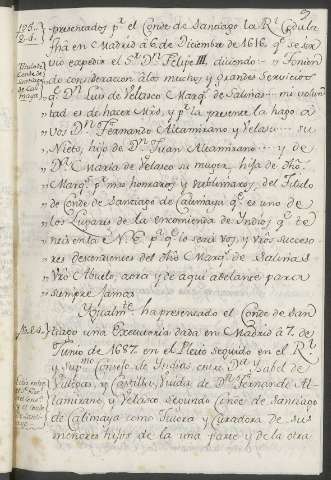 presentados pr. el Conde de Santiago la Rl. Cedula
fha en Madrid à 6 de Diciembre de 1616. qe. se sir
vio expedir el Sr. Dn. Felipe III, diciendo = Tenien
" do consideracion a los muchos y Grandes Servicios
" qe. Dn. Luis de Velasco Marqs. de Salinas ... mi volun
" tad es de hacer Mrd, y pr. la presente la hago à
" vos Dn. Fernando Altamirano y Velasco su
" Nieto, hijo de Dn. Juan Altamirano ... y de
" Da. Maria de Velasco su muger, hija de dho.
" Marqs. pa. mas honraros y sublimaros, del Titulo
" de Conde de Santiago de Calimaya qe. es uno de
" los Lugares de la encomienda de Yndios qe. te
" neis en la N. E. pa. qe. lo seais vos, y vros. succeso
" res descendientes del dho Marqs. de Salinas
" vro. Abuelo, aora y de aqui adelante para
" siempre jamas.
Ygualmte. ha presentado el Conde de San
tiago una Executoria dada en Madrid à 7. de
Junio de 1687. en el Pleito seguido en el Rl.
y Supmo. Consejo de Yndias entre Da. Isabel de
Villegas, y Castilla, Viuda de Dn. Fernando Al
tamirano, y Velasco, segundo Conde de Santiago
de Calimaya como Tutora y Curadora de sus
menores hijos de la una parte y de la otra
Titulo de
Conde de
Santiago
de Cali
maya